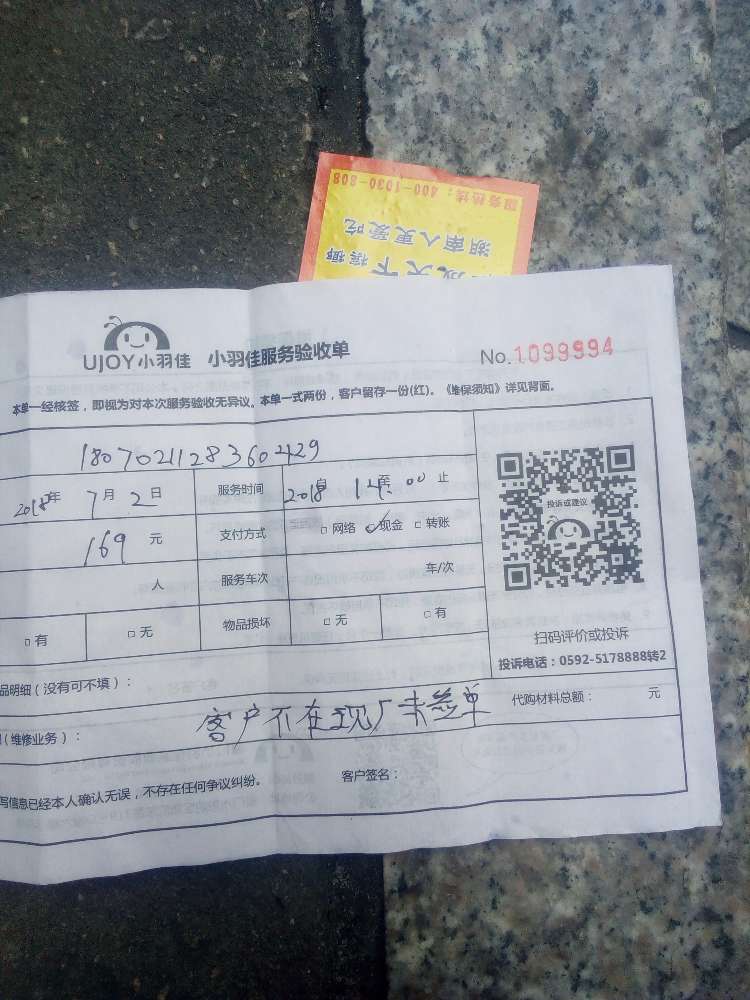 服务热线：400-1030-808
湖南人更爱吃
成天下 槟榔
UJOY小羽佳 小羽佳服务验收单 No.1099994
本单一经核签，即视为对本次服务验收无异议。本单一式两份，客户留存一份(红)。《维保须知》详见背面。
1807021128360429
2018年 7月 2日 服务时间 2018 至 14 00 止
投诉或建议
169 元 支付方式 □网络 ✓现金 □转账
人 服务车次 车/次
□有 □无 物品损坏 □无 □有
扫码评价或投诉
投诉电话：0592-5178888转2
品明细（没有可不填）： 代购材料总额： 元
（维修业务）： 客户不在现厂未签单
写信息已经本人确认无误，不存在任何争议纠纷。 客户签名：